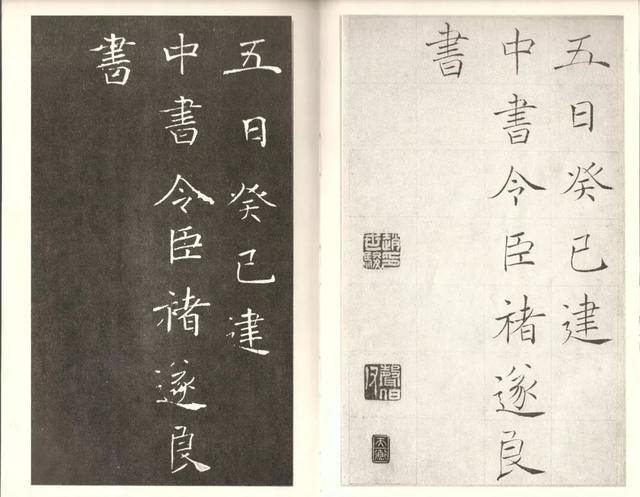 五日癸巳建
中書令臣褚遂良
書
趙印世駿
五日癸巳建
中書令臣褚遂良
書